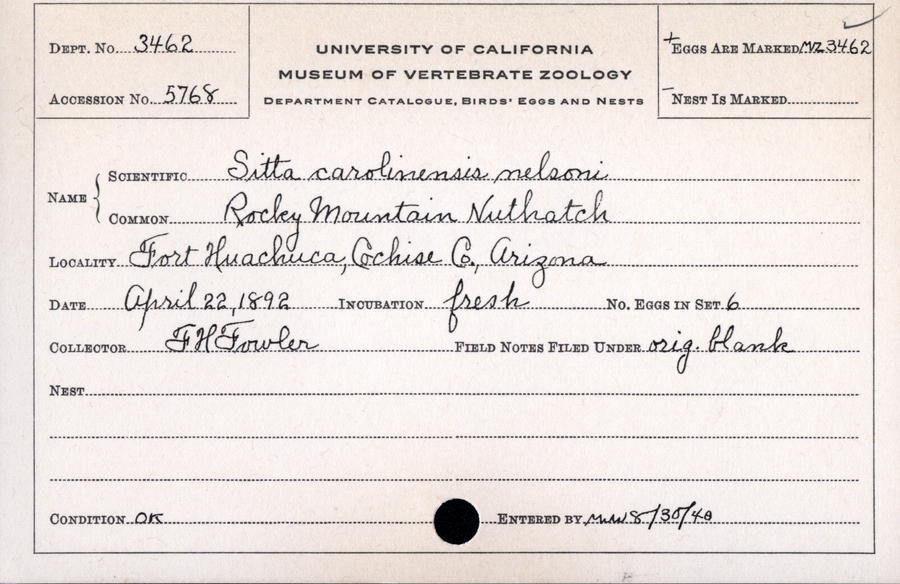 DEPT. NO. 3462
ACCESSION NO. 5768
UNIVERSITY OF CALIFORNIA
MUSEUM OF VERTEBRATE ZOOLOGY
DEPARTMENT CATALOGUE, BIRDS' EGGS AND NESTS
+ EGGS ARE MARKED MVZ3462
- NEST IS MARKED
NAME
SCIENTIFIC Sitta carolinensis nelsoni
COMMON Rocky Mountain Nuthatch
LOCALITY Fort Huachuca, Cochise Co., Arizona
DATE April 22, 1892 INCUBATION fresh NO. EGGS IN SET 6
COLLECTOR F H Fowler FIELD NOTES FILED UNDER orig. blank
NEST
CONDITION OK ENTERED BY 8/30/40